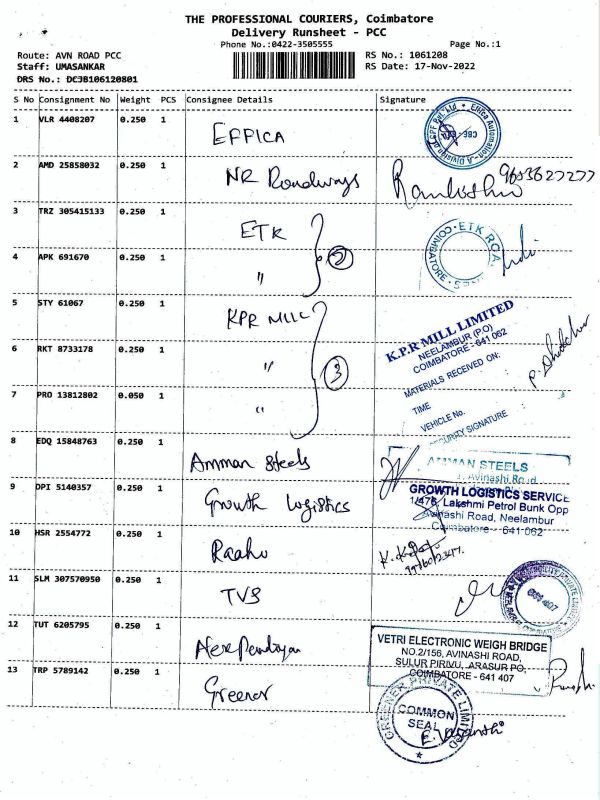 THE PROFESSIONAL COURIERS, Coimbatore
Delivery Runsheet - PCC
Phone No.:0422-3505555
Page No.:1
Route: AVN ROAD PCC
RS No.: 1061208
Staff: UMASANKAR
RS Date: 17-Nov-2022
DRS No.: DC3B106120801
S No Consignment No Weight PCS Consignee Details Signature
1 VLR 4408207 0.250 1 EFFICA
2 AMD 25858032 0.250 1 NR Roadways
3 TRZ 305415133 0.250 1 ETK
4 APK 691670 0.250 1 " 2
ETK ROA
COIMBATORE
5 STY 61067 0.250 1 KPR MILL
6 RKT 8733178 0.250 1 " 3
7 PRO 13812802 0.050 1 "
K.P.R MILL LIMITED
NEELAMBUR (PO)
COIMBATORE - 641 062
MATERIALS RECEIVED ON:
TIME :
VEHICLE No. :
SECURITY SIGNATURE :
8 EDQ 15848763 0.250 1 Amman Steels
AMMAN STEELS
Avinashi Road
9 DPI 5140357 0.250 1 Growth Logistics
GROWTH LOGISTICS SERVICE
1/476, Lakshmi Petrol Bunk Opp
Avinashi Road, Neelambur
Coimbatore - 641 062
10 HSR 2554772 0.250 1 Raaho
11 SLM 307570950 0.250 1 TVS
641 407
12 TUT 6205795 0.250 1
VETRI ELECTRONIC WEIGH BRIDGE
NO.2/156, AVINASHI ROAD,
SULUR PIRIVU, ARASUR PO,
COIMBATORE - 641 407
13 TRP 5789142 0.250 1 Greener
GREENER PRIVATE LIMITED
COMMON
SEAL
E. Vasanthi